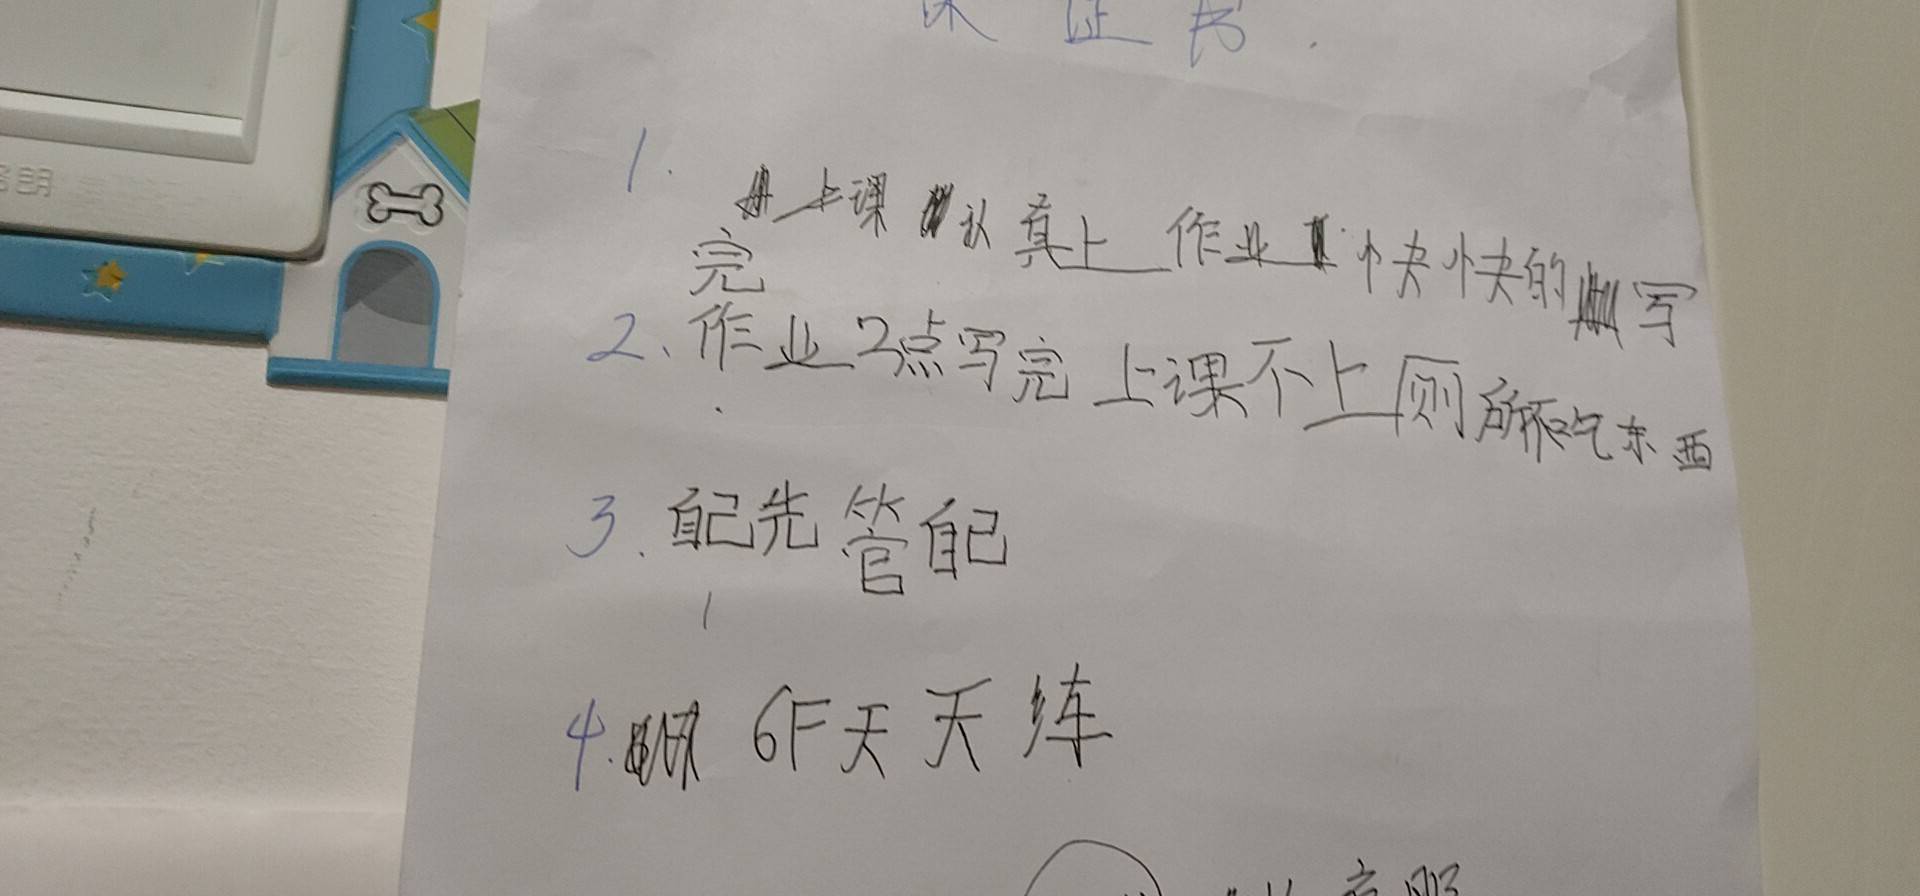 保证书
1. 上课认真上 作业快快的写
完
2、作业2点写完 上课不上厕所不吃东西
3. 自己先管自己
4. 6F天天练